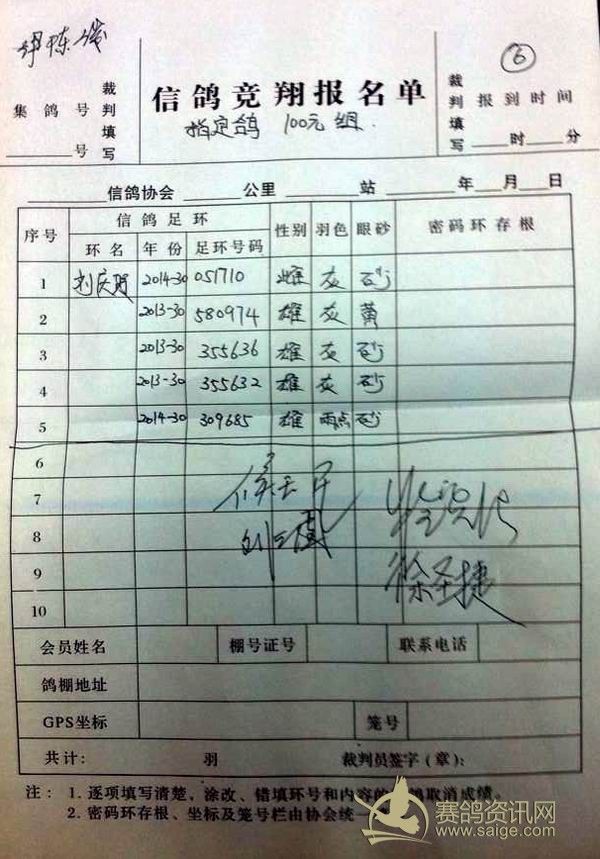 ⑥
裁判填写
集鸽号
号
信鸽竞翔报名单
指定鸽 100元组
裁判填写
报到时间
时 分
信鸽协会 公里 站 年 月 日
序号 信鸽足环 性别 羽色 眼砂 密码环存根
环名 年份 足环号码
1 刘庆贺 2014-30 051710 雌 灰 砂
2 2013-30 580974 雄 灰 黄
3 2013-30 355636 雄 灰 砂
4 2013-30 355632 雄 灰 砂
5 2014-30 309685 雄 雨点 砂
6
7
8
9 徐圣捷
10
会员姓名 棚号证号 联系电话
鸽棚地址
GPS坐标 笼号
共计： 羽 裁判员签字（章）：
注：1. 逐项填写清楚，涂改、错填环号和内容的 鸽取消成绩。
2. 密码环存根、坐标及笼号栏由协会统一
赛鸽资讯网
www.saige.com